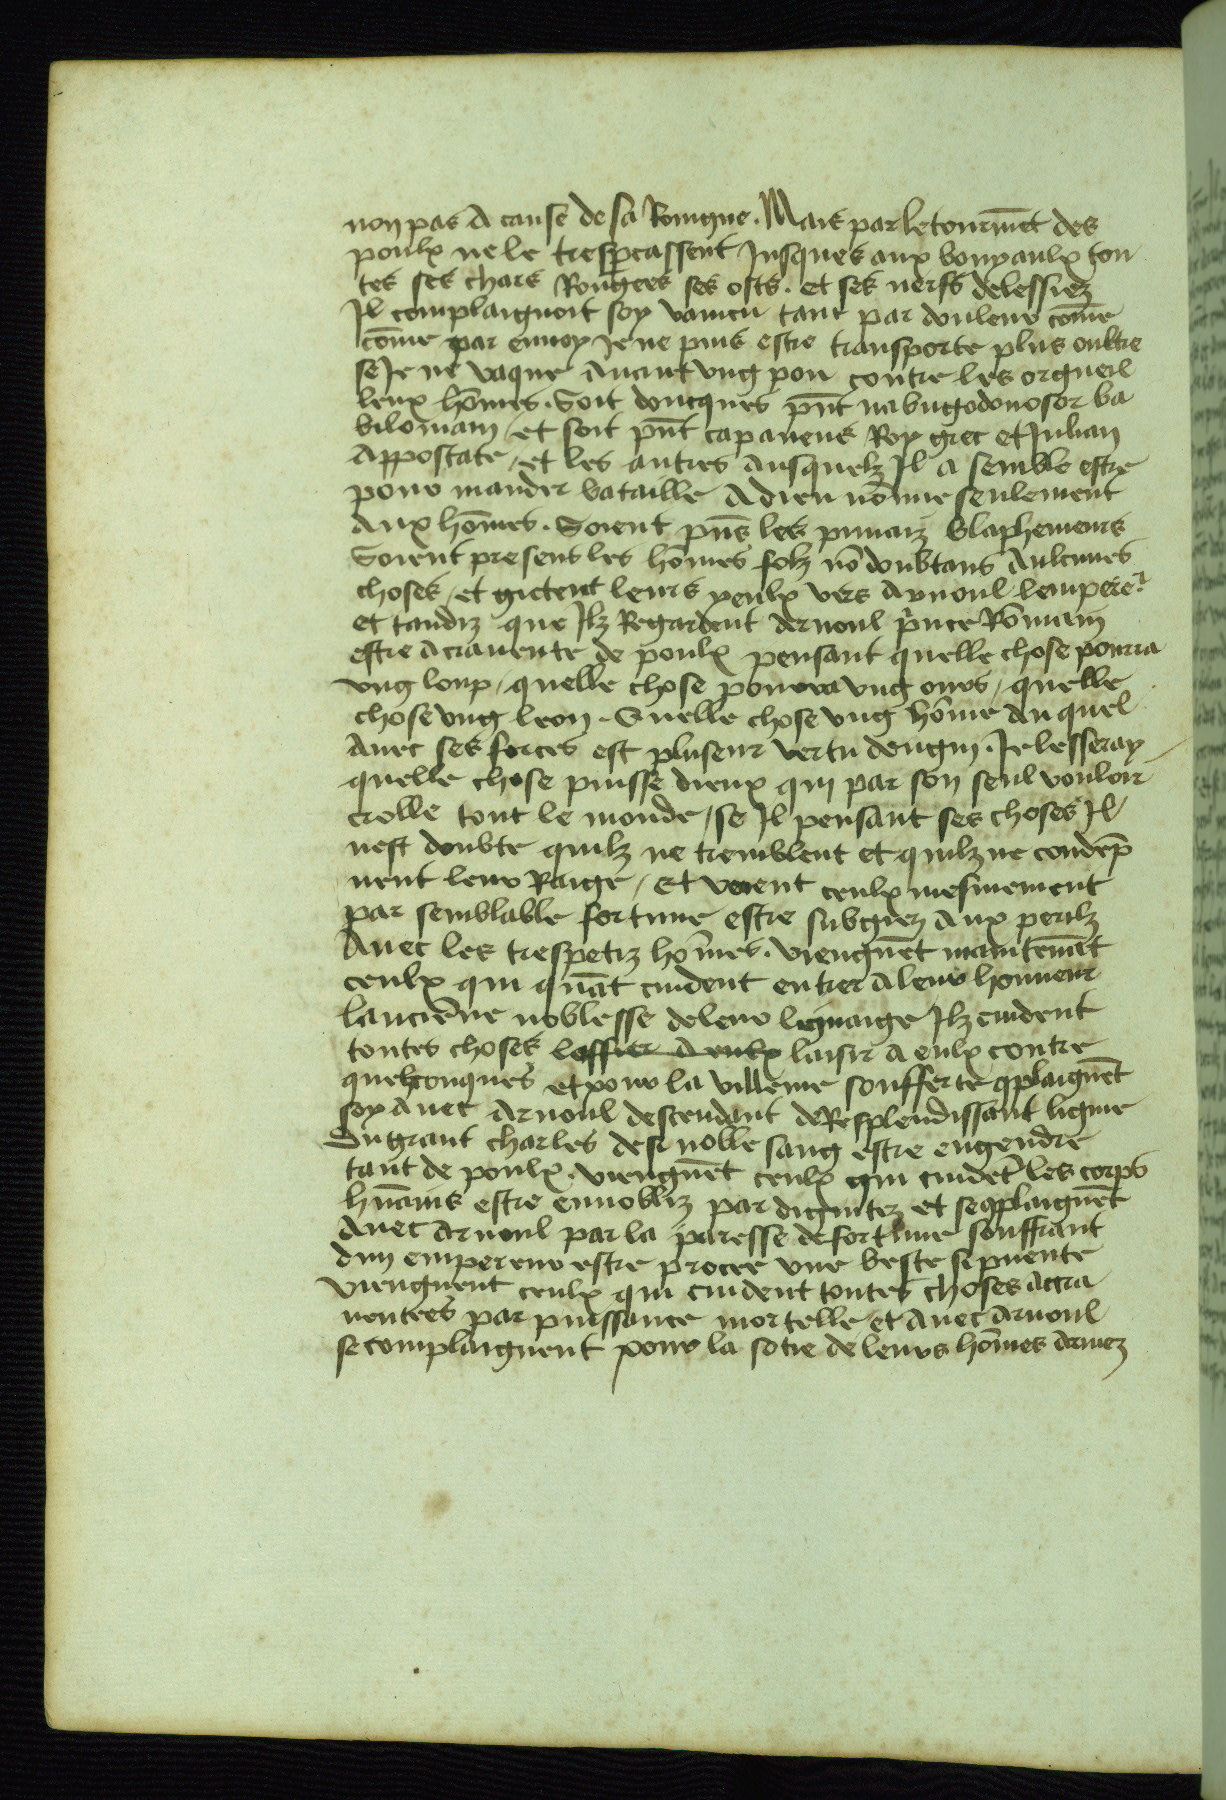 non pas a cause de sa Rongne. Mais par le tourmẽt des
poulx ne le trespercassent Jusques aux bouyaulx tou
tes ses chars Rongees ses osts. et ses nerfs delessiez
Il complaignoit soy vaincu tant par douleur cõme
cõme par ennoy Je ne puis estre transporte plus oultre
se Je ne vaque avant ung pou contre les orgueil
leux hõmes. Soit doncques pñt nabugodonosor ba
biloniam / et soit pñt capaneus Roy grec et Julian
Appostate / et les autres ausquelz Il a semble estre
pour mander bataille a dieu nõ mie seulement
aux hõmes. Soient pñs les punaiz blaphemeurs
Soient presens les hõmes folz nõ doubtans aulcunes
choses / et gictent leurs yeulx vers arnoul lempere2
et tandiz que Ilz Regardent arnoul p̃nce Rõmain
estre acravente de poulx pensant quelle chose pourra
ung loup / quelle chose pourra ung ours / quelle
chose ung leon. Quelle chose ung hõme du quel
avec ses forces est pluseur vertu dengin. Je lesseray
quelle chose puisse dieux qui par son seul vouloir
crolle tout le monde / se Il pensant ses choses Il
nest doubte quilz ne tremblent et quilz ne condep̃
nent leur Raige / Et voient ceulx mesmement
par semblable fortune estre subgiez aux perilz
avec les trespetiz hõmes. viengnẽt maintenãt
ceulx qui quãt cuident entrer a leur honneur
lanciẽne noblesse de leur lignaige Ilz cuident
toutes choses laisir a eulx contre
quelconques et pour la villenie soufferte 9plaignẽt
soy avec arnoul descendant de Resplendissant lignie
Du grant charles de si noble sang estre engendre
tant de poulx. viengnẽt ceulx qui cuidẽt les corps
hũains estre ennobliz par dignitez et se 9plaignẽt
avec arnoul par la paresse de fortune souffrant
dun empereur estre procree une beste si puente
viengnent ceulx qui cuident toutes choses acra
ventees par puissance mortelle et avec arnoul
se complaignent pour la sotie de leurs hõmes armez